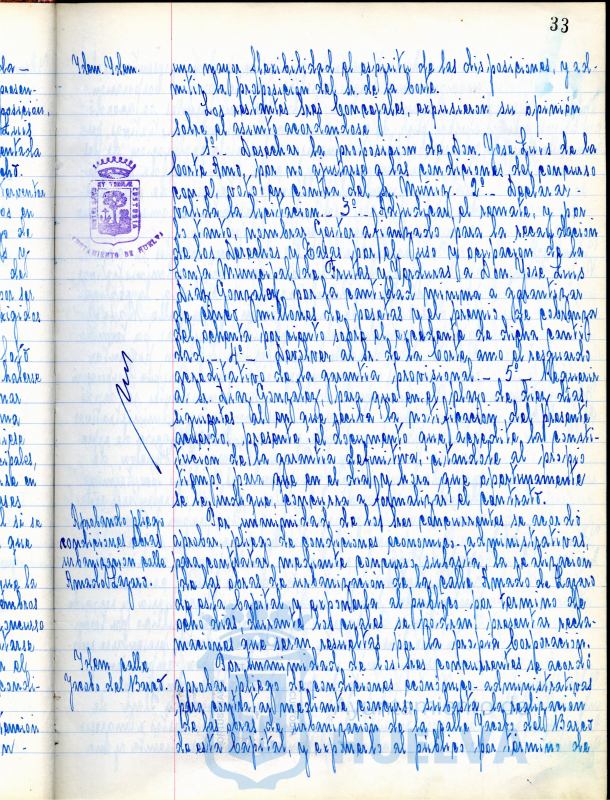 33
Idem Idem.
una mayor flexibilidad el espiritu de las disposiciones, y ad-
mitir la proposición del Sr. de la Corte.
Los restantes Sres Concejales, expusieron su opinión
sobre el asunto acordandose
1º Desechar la proposición de Don Jose Luis de la
Corte Amo, por no ajustarse a las condiciones del concurso
con el voto en contra del Sr. Muñiz. 2º Declarar
valida la licitación.- 3º Adjudicar el remate, y por
lo tanto, nombrar Gestor afianzado para la recaudación
de los Derechos y Tasas por el uso y ocupación de la
Lonja Municipal de Frutas y Verduras a Don Jose Luis
Diaz Gonzalez por la cantidad minima a garantizar
de cinco millones de pesetas y el premio de cobranza
del ochenta por ciento sobre el excedente de dicha canti-
dad.- 4º- Devolver al Sr. de la Corte amo el resguardo
acreditativo de la garantia provisional.- 5º Requerir
al Sr. Diaz Gonzalez para que en el plazo de diez dias,
siguientes al en que reciba la notificación del presente
acuerdo, presente el documento que acredite la consti-
tución de la garantia definitiva, citandole al propio
tiempo para que en el dia y hora que oportunamente
se le indique, concurra a formalizar el contrato.
Aprobando pliego
condiciones obras
urbanización calle
Amado Lazaro.
Por unanimidad de los Sres concurrentes se acordó
aprobar, pliego de condiciones economico-administrativas
para contratar mediante concurso subasta, la realización
de las obras de urbanización de la calle Amado de Lazaro
de esta Capital y exponerlo al publico por termino de
ocho dias, durante los cuales se podran presentar recla-
maciones que seran resueltas por la propia Corporación.
Idem calle
Jacobo del Barco.
Por unanimidad de los Sres concurrentes se acordó
aprobar pliego de condiciones económico-administrativas
para contratar mediante concurso subasta la realización
de las obras de urbanización de la calle Jacobo del Barco
de esta Capital, y exponerlo al publico por termino de
AYUNTAMIENTO DE HUELVA
HUELVA